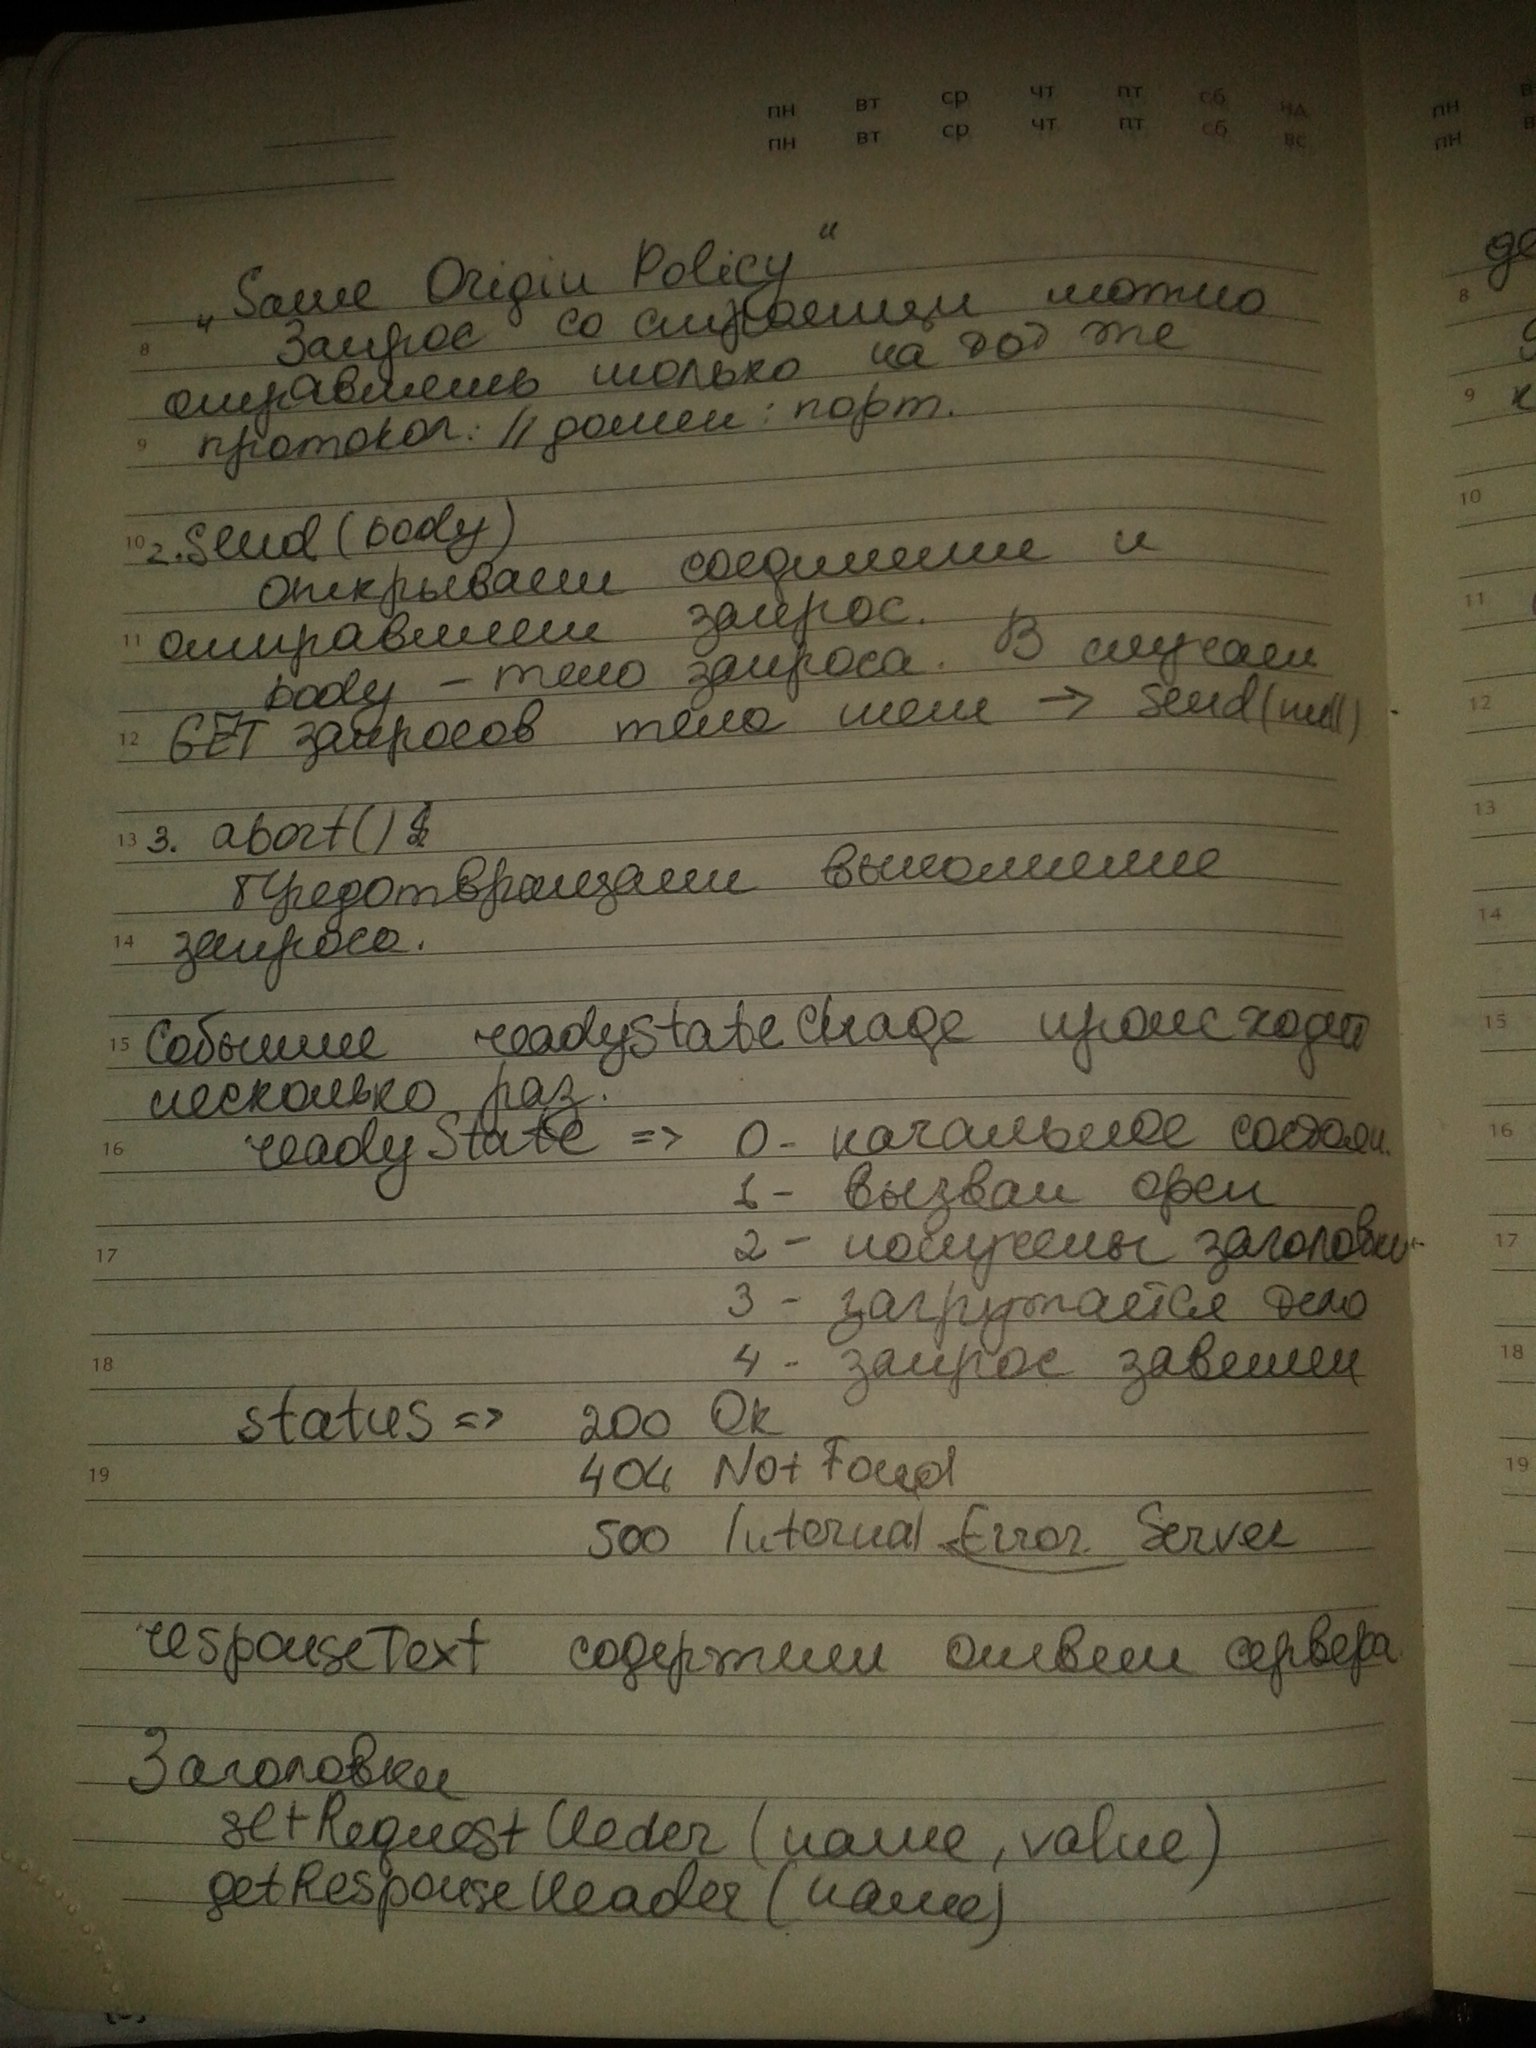 пн вт ср чт пт сб нд
пн вт ср чт пт сб вс
„Same Origin Policy“
Запрос со страницы можно
отправлять только на тот же
протокол: // домен : порт.
2. Send (body)
Открывает соединение и
отправляет запрос.
body – тело запроса. В случаем
GET запросов тела нет -> send(null)
3. abort()
Предотвращает выполнение
запроса.
Событие readyStateChage происходит
несколько раз.
readyState => 0 - начальное состоян.
1 - вызван open
2 - получены заголовки
3 - загружается тело
4 - запрос завершен
status => 200 Ok
404 Not Found
500 Internal Error Server
responseText содержит ответ сервера
Заголовки
setRequestHeder (name, value)
getResponseHeader (name)
8
9
10
11
12
13
14
15
16
17
18
19
пн
пн
8
9
10
11
12
13
14
15
16
17
18
19